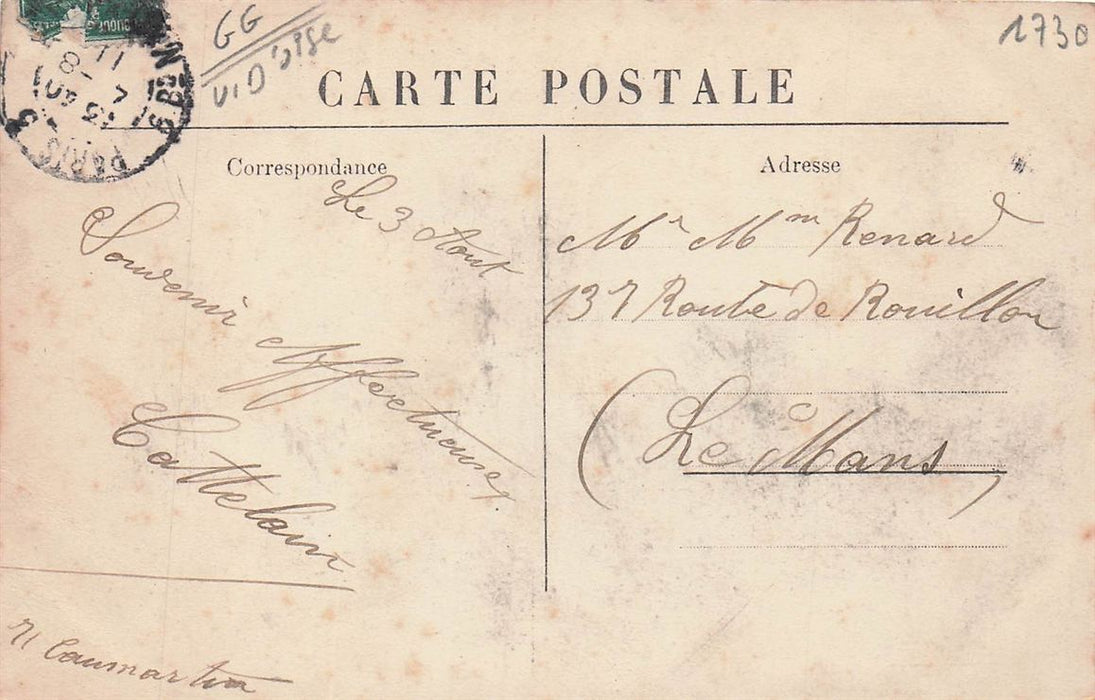 GG
V.D'oise
1730
CARTE POSTALE
Correspondance
Le 3 Aout
Souvenir
Affectueuses
Cattelain
Caumartin
Adresse
Mr Mm Renard
137 Route de Rouillon
(Le Mans)
PARIS